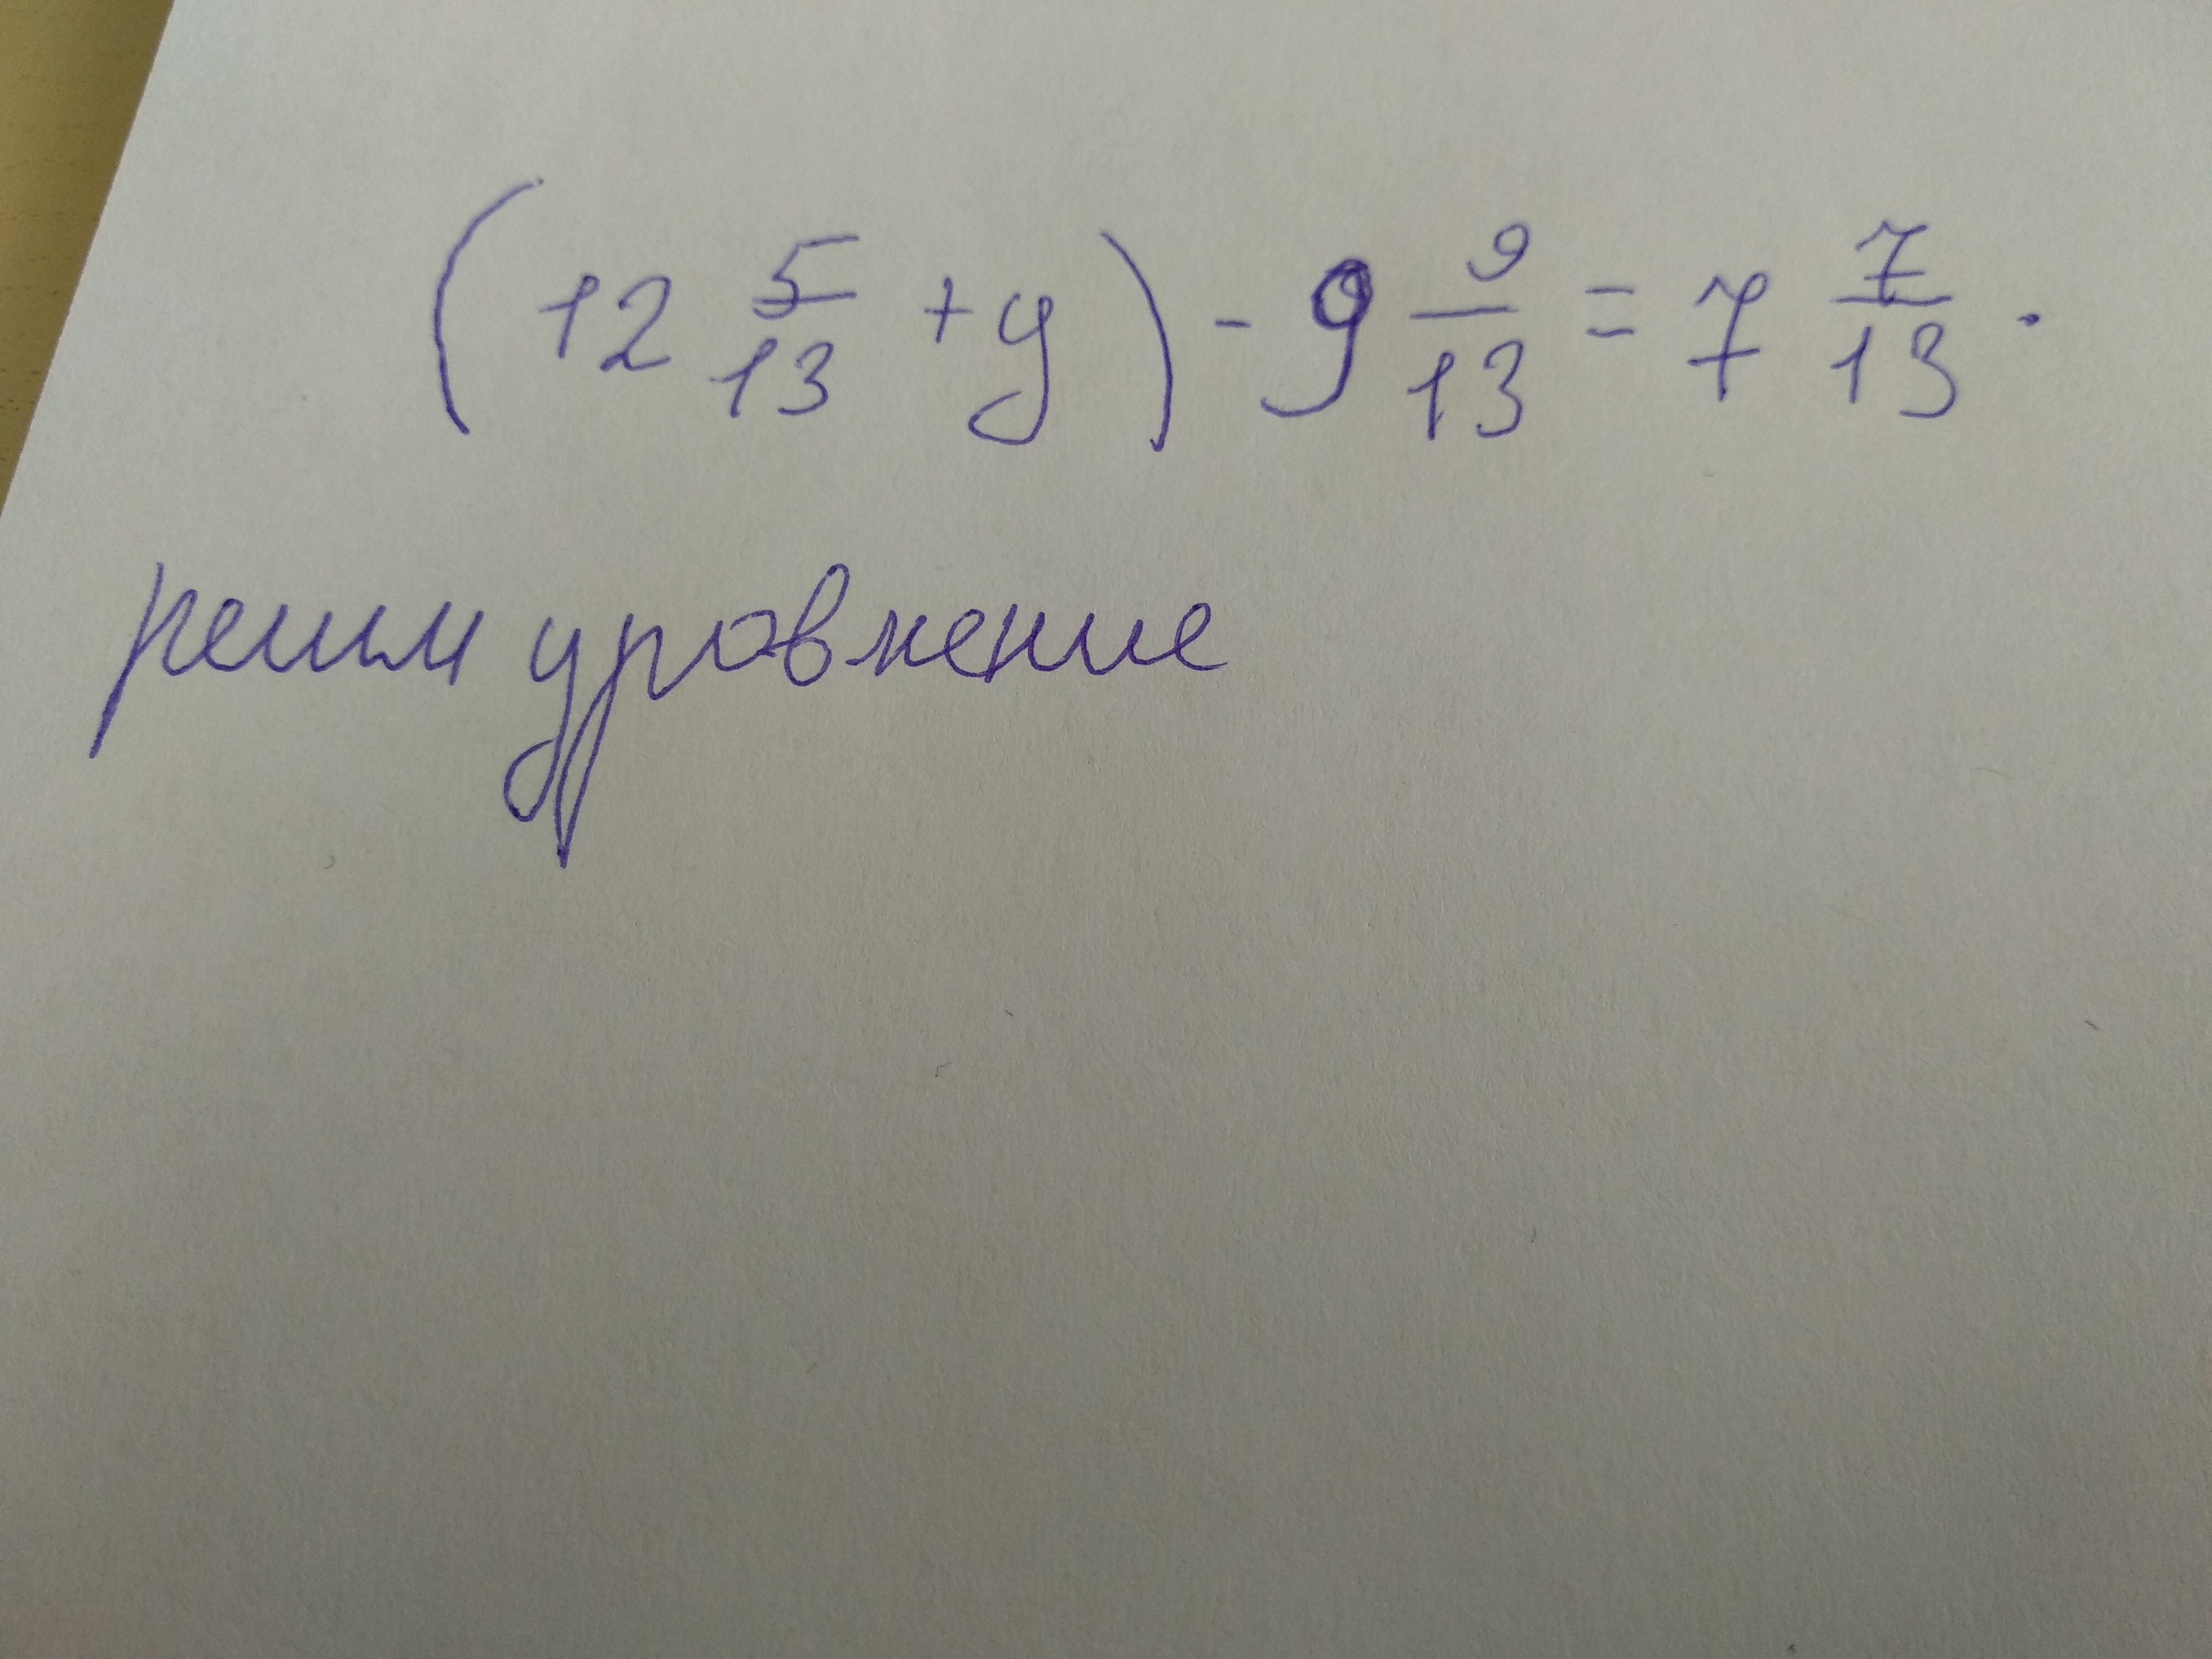 (12 5/13 + y) - 9 9/13 = 7 7/13.
реши уровнение